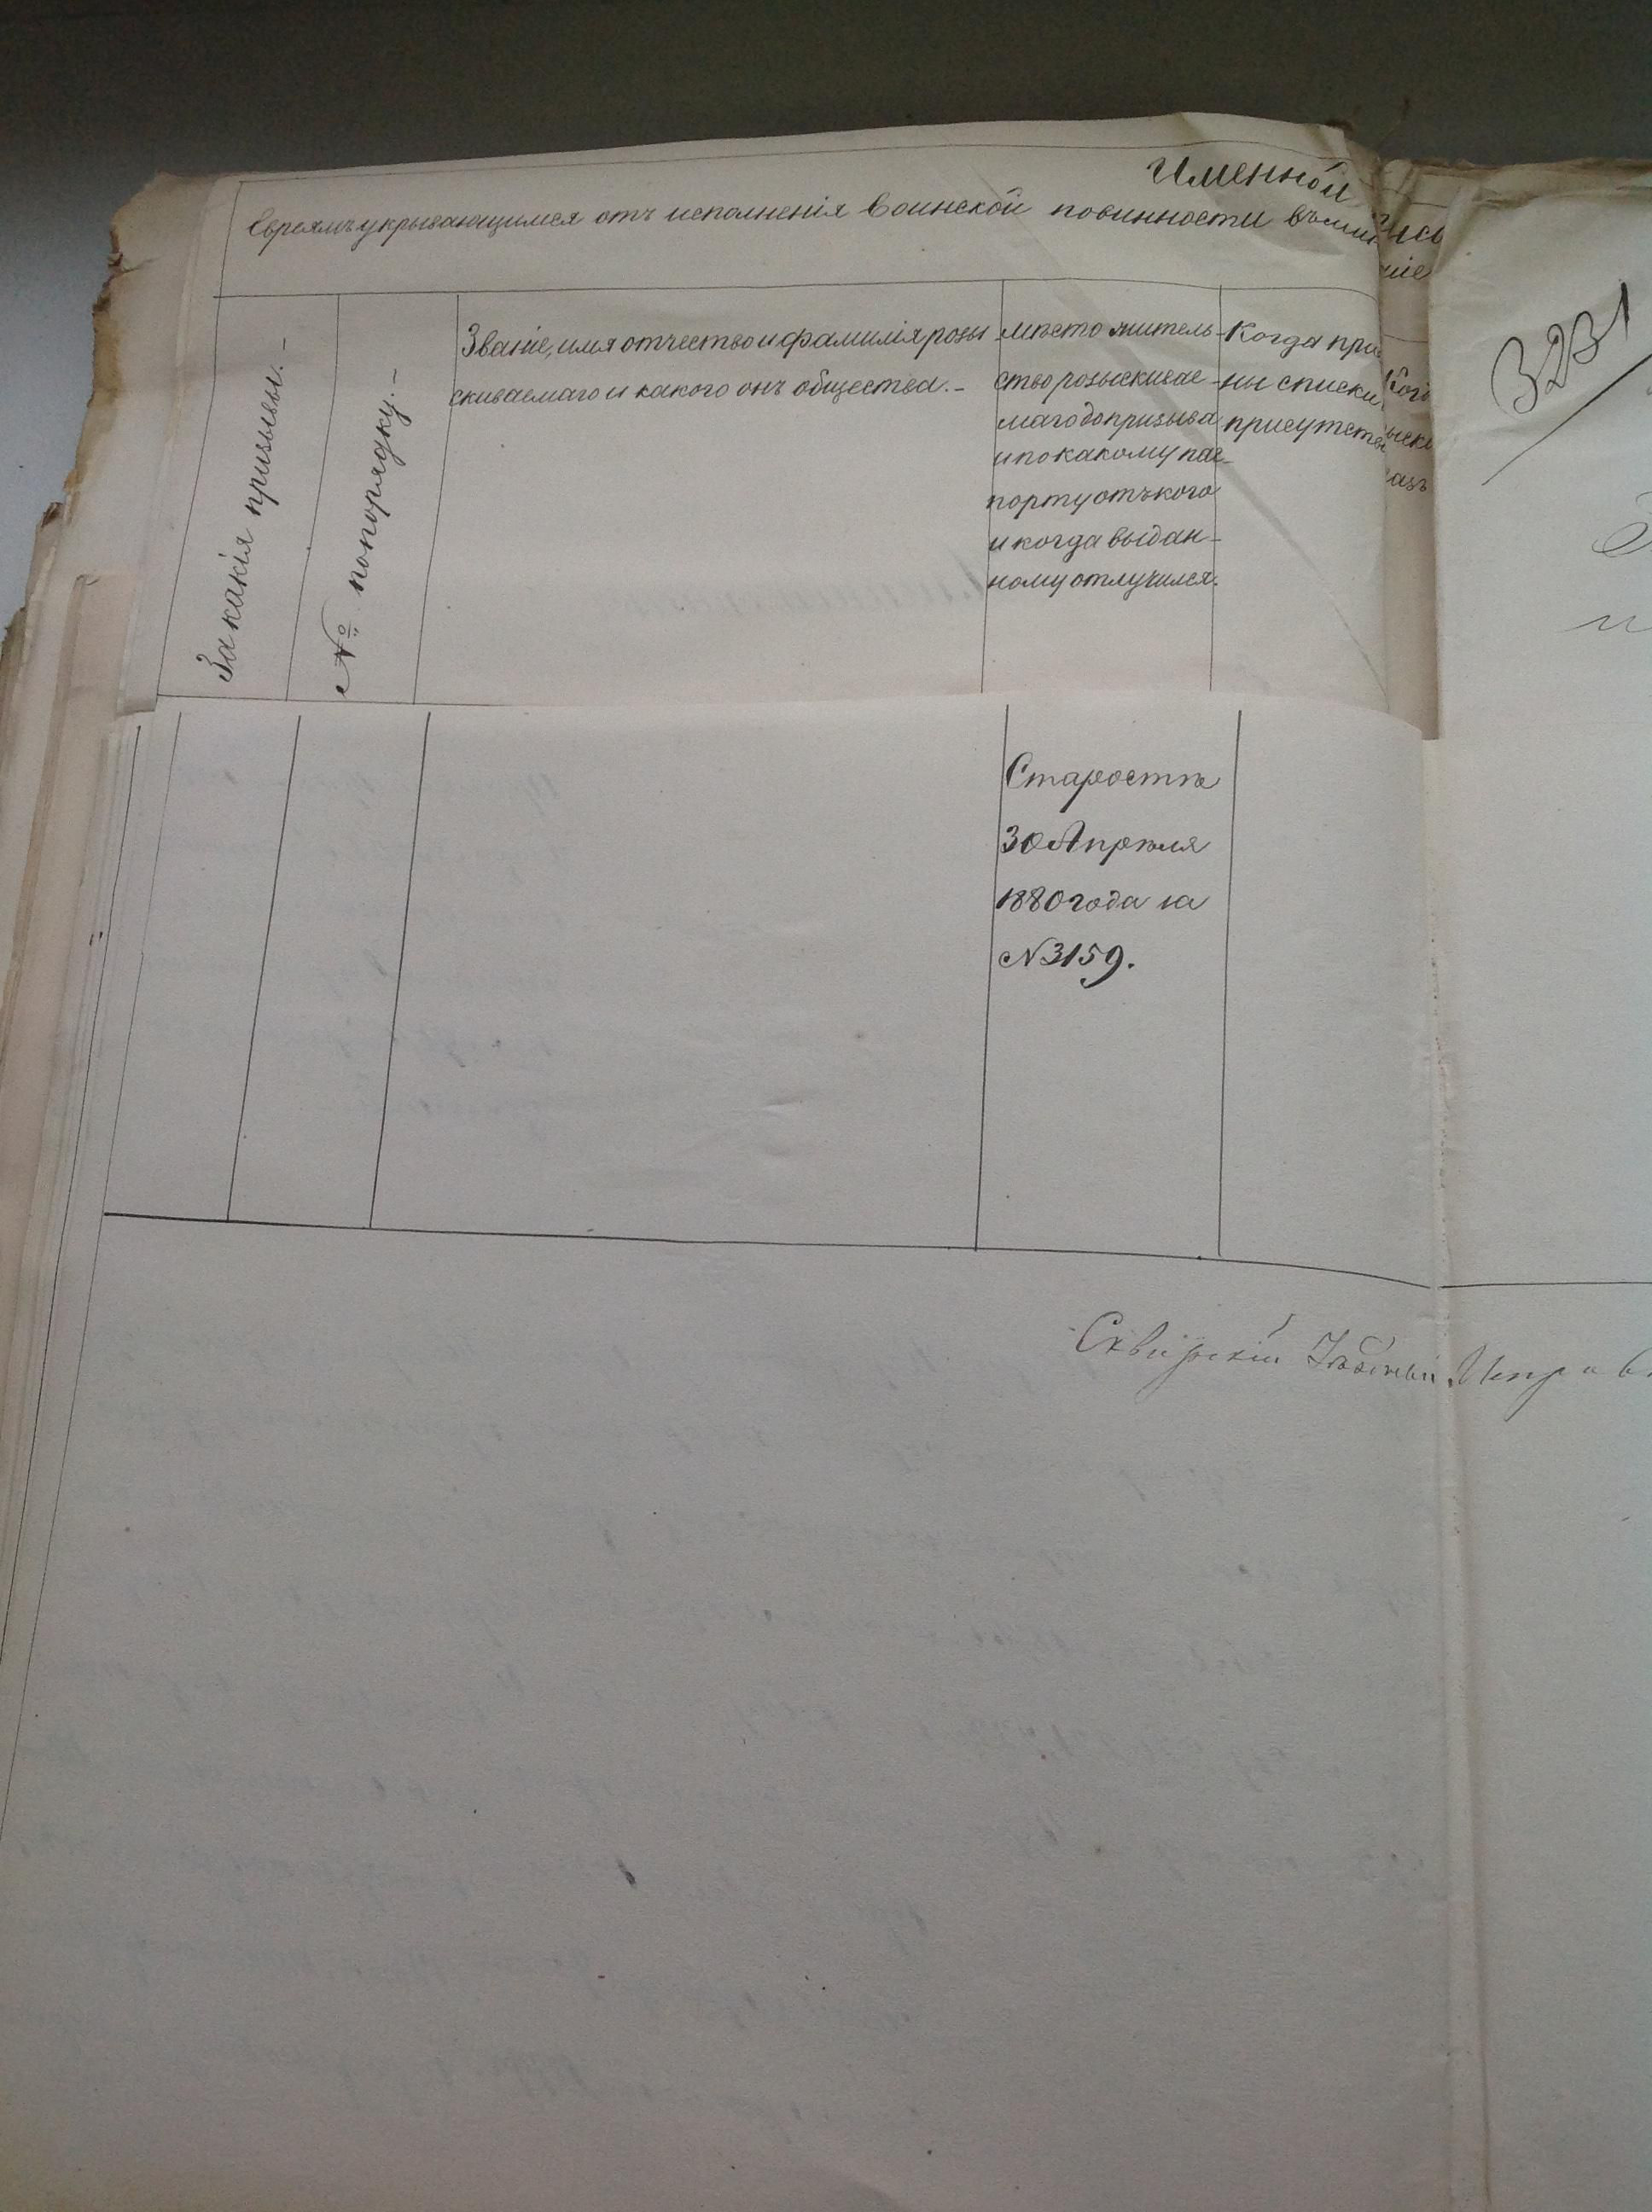 Именной
Евреямъ укрывающимся отъ исполненія воинской повинности
За какія призывы. -
№ попорядку. -
Званіе, имя отчество и фамилія розы
скиваемаго и какого онъ общества. -
мѣсто житель-
ство розыскивае-
маго до призыва
и по какому пас-
порту отъ кого
и когда выдан-
ному отлучился.
Когда при
ны списки
присутств
3231
Старостѣ
30 Апрѣля
1880 года за
№ 3159.
Сквирскій Уѣздный Исправ